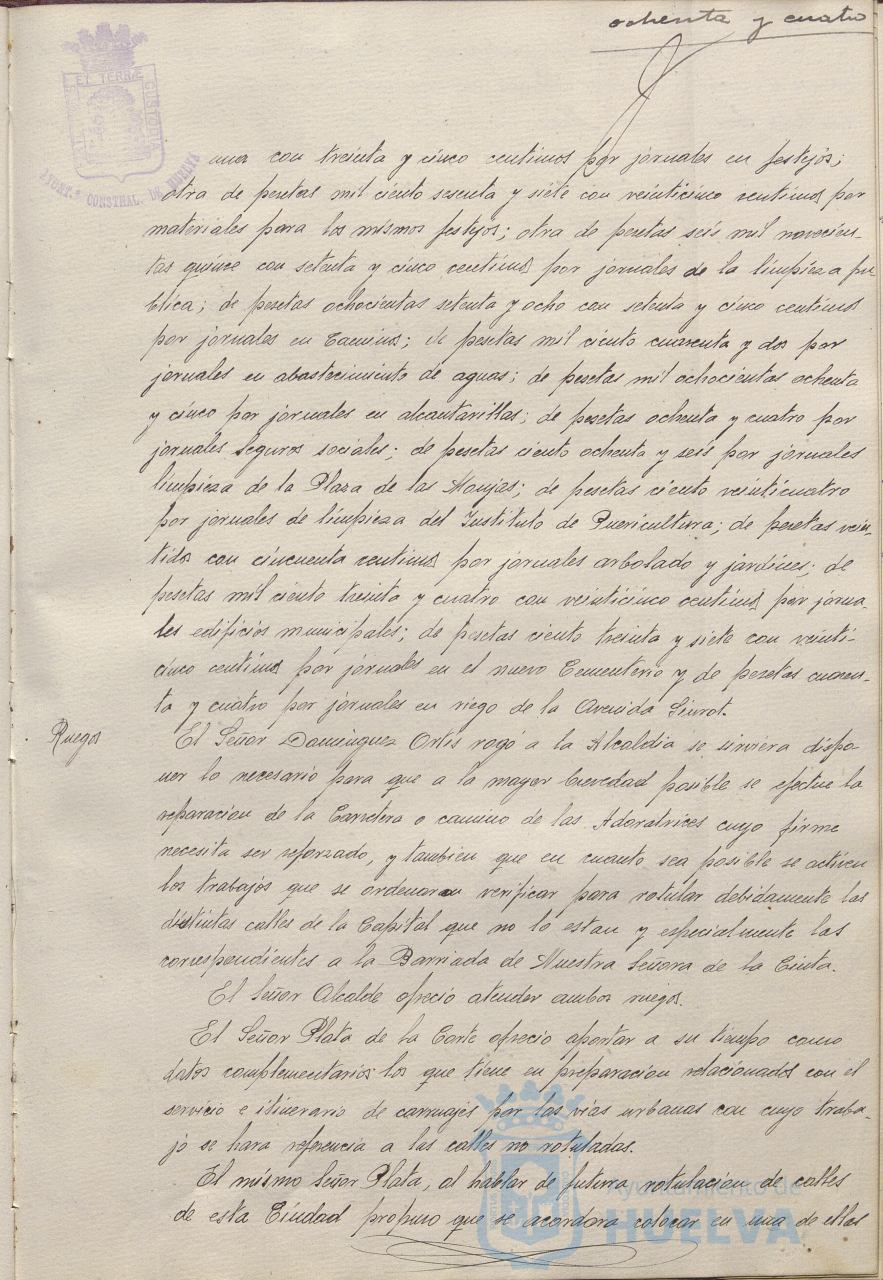 ochenta y cuatro
ET TERRÆ
CUSTODIA
AYUNT.º CONSTNAL. DE HUELVA
con treinta y cinco centimos por jornales en festejos;
otra de pesetas mil ciento sesenta y siete con veinticinco centimos por
materiales para los mismos festejos; otra de pesetas seis mil novecien-
tas quince con setenta y cinco centimos por jornales de la limpieza pu-
blica; de pesetas ochocientas setenta y ocho con setenta y cinco centimos
por jornales en Caminos; de pesetas mil ciento cuarenta y dos por
jornales en abastecimiento de aguas; de pesetas mil ochocientas ochenta
y cinco por jornales en alcantarillas; de pesetas ochenta y cuatro por
jornales Seguros sociales; de pesetas ciento ochenta y seis por jornales
limpieza de la Plaza de las Monjas; de pesetas ciento veinticuatro
por jornales de limpieza del Instituto de Puericultura; de pesetas vein-
tidos con cincuenta centimos por jornales arbolado y jardines; de
pesetas mil ciento treinta y cuatro con veinticinco centimos por jorna-
les edificios municipales; de pesetas ciento treinta y siete con veinti-
cinco centimos por jornales en el nuevo Cementerio y de pesetas cuaren-
ta y cuatro por jornales en riego de la Avenida Siurot.
Ruegos
El Señor Dominguez Ortis rogó a la Alcaldia se sirviera dispo-
ner lo necesario para que a la mayor brevedad posible se efectue la
reparacion de la Carretera o camino de las Adoratrices cuyo firme
necesita ser reforzado, y tambien que en cuanto sea posible se activen
los trabajos que se ordenaron verificar para rotular debidamente las
distintas calles de la Capital que no lo estan y especialmente las
correspondientes a la Barriada de Nuestra Señora de la Cinta.
El Señor Alcalde ofrecio atender ambos ruegos.
El Señor Plata de la Corte ofrecio aportar a su tiempo como
datos complementarios los que tiene en preparacion relacionados con el
servicio e itinerario de carruajes por las vias urbanas con cuyo traba-
jo se hara referencia a las calles no rotuladas.
El mismo Señor Plata, al hablar de futura rotulacion de calles
de esta Ciudad propuso que se acordara colocar en una de ellas
Ayuntamiento de
HUELVA